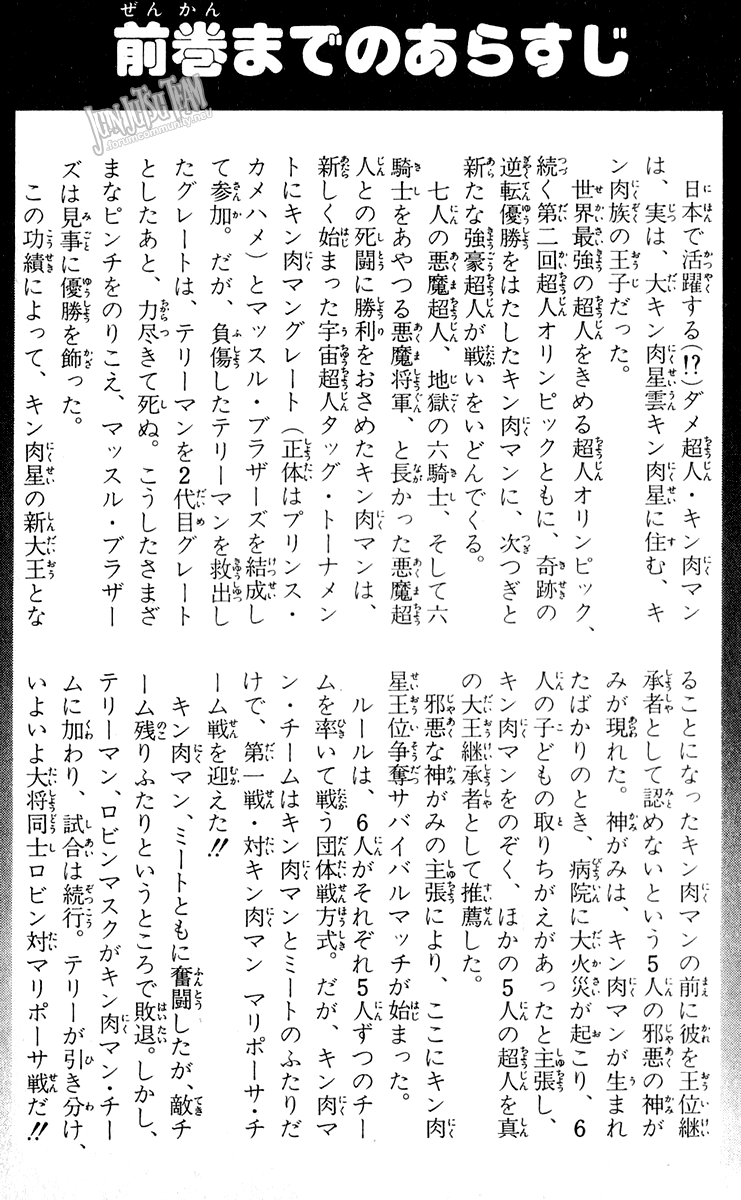 前巻までのあらすじ
JUNJOTSUTEAM
.forumcommunity.net/
日本で活躍する(!?)ダメ超人・キン肉マン
は、実は、大キン肉星雲キン肉星に住む、キ
ン肉族の王子だった。
世界最強の超人をきめる超人オリンピック、
続く第二回超人オリンピックともに、奇跡の
逆転優勝をはたしたキン肉マンに、次つぎと
新たな強豪超人が戦いをいどんでくる。
七人の悪魔超人、地獄の六騎士、そして六
騎士をあやつる悪魔将軍、と長かった悪魔超
人との死闘に勝利をおさめたキン肉マンは、
新しく始まった宇宙超人タッグ・トーナメン
トにキン肉マングレート(正体はプリンス・
カメハメ)とマッスル・ブラザーズを結成し
て参加。だが、負傷したテリーマンを救出し
たグレートは、テリーマンを2代目グレート
としたあと、力尽きて死ぬ。こうしたさまざ
まなピンチをのりこえ、マッスル・ブラザー
ズは見事に優勝を飾った。
この功績によって、キン肉星の新大王とな
ることになったキン肉マンの前に彼を王位継
承者として認めないという5人の邪悪の神が
みが現れた。神がみは、キン肉マンが生まれ
たばかりのとき、病院に大火災が起こり、6
人の子どもの取りちがえがあったと主張し、
キン肉マンをのぞく、ほかの5人の超人を真
の大王継承者として推薦した。
邪悪な神がみの主張により、ここにキン肉
星王位争奪サバイバルマッチが始まった。
ルールは、6人がそれぞれ5人ずつのチー
ムを率いて戦う団体戦方式。だが、キン肉マ
ン・チームはキン肉マンとミートのふたりだ
けで、第一戦・対キン肉マン マリポーサ・チ
ーム戦を迎えた!!
キン肉マン、ミートともに奮闘したが、敵チ
ーム残りふたりというところで敗退。しかし、
テリーマン、ロビンマスクがキン肉マン・チー
ムに加わり、試合は続行。テリーが引き分け、
いよいよ大将同士ロビン対マリポーサ戦だ!!